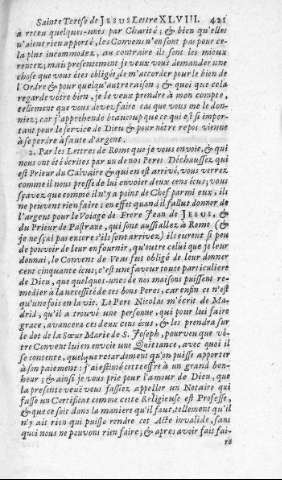 Sainte Terese de JESUS Lettre XLVIII. 421
a receu quelques-unes par Charité; & bien qu'elles
n'aient rien apporté, les Convens n'en sont pas pour ce-
la plus incommodez, au contraire ils sont les mieux
rentez; mais presentement je veux vous demander une
chose que vous étes obligé, de m'accorder pour le bien de
l'Ordre & pour quelqu'autre raison; & quoi que cela
regarde vôtre bien, je le veux prendre à mon compte,
tellement que vous devez faire cas que vous me le don-
niez; car j'apprehende beaucoup que ce qui est si impor-
tant pour le service de Dieu & pour nôtre repos vienne
à se perdre à faute d'argent.
2. Par les Lettres de Rome que je vous envoie, & qui
nous ont été écrites par un de nos Peres Déchaussez qui
est Prieur du Calvaire & qui en est arrivé, vous verrez
comme il nous presse de lui envoier deux cens écus; vous
sçavez que comme il n'y a point de Chef parmi eux, ils
ne peuvent rien faire; en effet quand il fallut donner de
l'argent pour le Voiage de Frere Jean de JESUS, &
du Prieur de Pastrane, qui sont aussi allez à Rome (&
je ne sçai pas encore s'ils sont arrivez) ils eurent si peu
de pouvoir de leur en fournir, qu'outre celui que je leur
donnai, le Convent de Veas fut obligé de leur donner
cent cinquante écus; c'est une faveur toute particuliere
de Dieu, que quelques-unes de nos maisons puissent re-
medier à la necessité de ces bons Peres, car enfin ce n'est
qu'une fois en la vie. Le Pere Nicolas m'écrit de Ma-
drid, qu'il a trouvé une personne, qui pour lui faire
grace, avancera ces deux cens écus, & les prendra sur
le dot de la Sœur Marie de S. Joseph, pourveu que vô-
tre Convent lui en envoie une Quittance, avec quoi il
se contente, quelque retardement qu'on puisse apporter
à son paiement: j'ai estimé cette offre à un grand bon-
heur; & ainsi je vous prie pour l'amour de Dieu, que
la presente veuë vous fassiez appeller un Notaire qui
fasse un Certificat comme cette Religieuse est Professe,
& que ce soit dans la maniere qu'il faut, tellement qu'il
n'y ait rien qui puisse rendre cet Acte invalide, sans
quoi nous ne pouvons rien faire; & apres avoir fait fai-
re